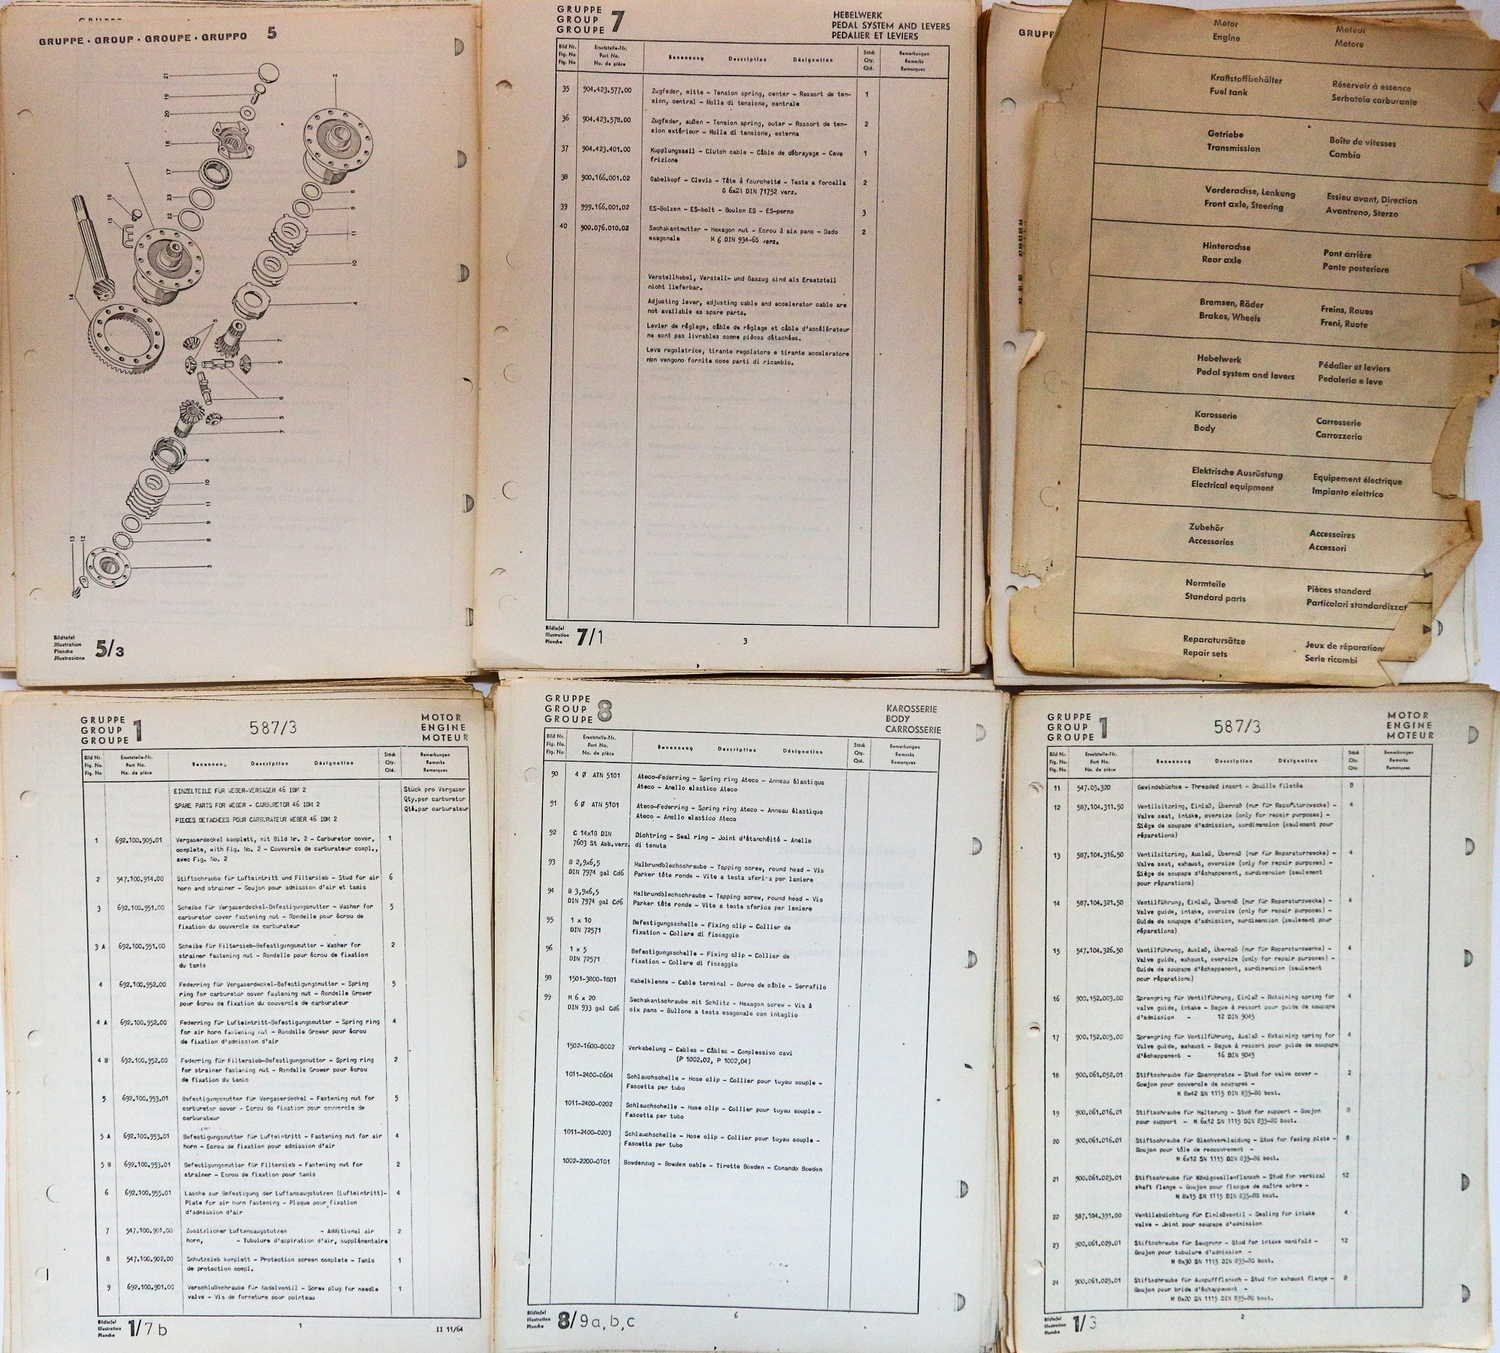 GRUPPE · GROUP · GROUPE · GRUPPO 5
Bildtafel
Illustration
Planche
Illustrazione
5/3
GRUPPE
GROUP
GROUPE
7
HEBELWERK
PEDAL SYSTEM AND LEVERS
PEDALIER ET LEVIERS
Bild Nr.
Fig. No.
Fig. No
Ersatzteile-Nr.
Part No.
No. de pièce
Benennung Description Désignation
Stück
Qty.
Qté.
Bemerkungen
Remarks
Remarques
35 904.423.577.00 Zugfeder, mitte – Tension spring, center – Ressort de ten- 1
sion, central – Molla di tensione, centrale
36 904.423.578.00 Zugfeder, außen – Tension spring, outer – Ressort de ten- 2
sion extérieur – Molla di tensione, esterna
37 904.423.401.00 Kupplungsseil – Clutch cable – Câble de débrayage – Cavo 1
frizione
38 900.166.001.02 Gabelkopf – Clevis – Tête à fourchette – Testa a forcella 2
G 6x24 DIN 71752 verz.
39 999.166.001.02 ES-Bolzen – ES-bolt – Boulon ES – ES-perno 3
40 900.076.010.02 Sechskantmutter – Hexagon nut – Ecrou à six pans – Dado 2
esagonale M 6 DIN 934-6S verz.
Verstellhebel, Verstell- und Gaszug sind als Ersatzteil
nicht lieferbar.
Adjusting lever, adjusting cable and accelerator cable are
not available as spare parts.
Levier de réglage, câble de réglage et câble d'accélérateur
ne sont pas livrables comme pièces détachées.
Leva regolatrice, tirante regolatore e tirante acceleratore
non vengono fornite come parti di ricambio.
Bildtafel
Illustration
Planche
7/1
3
GRUPP
Motor Moteur
Engine Motore
Kraftstoffbehälter Réservoir à essence
Fuel tank Serbatoio carburante
Getriebe Boîte de vitesses
Transmission Cambio
Vorderachse, Lenkung Essieu avant, Direction
Front axle, Steering Avantreno, Sterzo
Hinterachse Pont arrière
Rear axle Ponte posteriore
Bremsen, Räder Freins, Roues
Brakes, Wheels Freni, Ruote
Hebelwerk Pédalier et leviers
Pedal system and levers Pedaleria e leve
Karosserie Carrosserie
Body Carrozzeria
Elektrische Ausrüstung Equipement électrique
Electrical equipment Impianto elettrico
Zubehör Accessoires
Accessories Accessori
Normteile Pièces standard
Standard parts Particolari standardizzat
Reparatursätze Jeux de réparation
Repair sets Serie ricambi
GRUPPE
GROUP
GROUPE
1
587/3
MOTOR
ENGINE
MOTEUR
Bild Nr.
Fig. No.
Fig. No
Ersatzteile-Nr.
Part No.
No. de pièce
Benennung Description Désignation
Stück
Qty.
Qté.
Bemerkungen
Remarks
Remarques
EINZELTEILE FÜR WEBER-VERGASER 46 IDM 2 Stück pro Vergaser
SPARE PARTS FOR WEBER – CARBURETOR 46 IDM 2 Qty.per carburetor
PIECES DETACHEES POUR CARBURATEUR WEBER 46 IDM 2 Qté.par carburateur
1 692.100.905.01 Vergaserdeckel komplett, mit Bild Nr. 2 – Carburetor cover, 1
complete, with Fig. No. 2 – Couvercle de carburateur compl.,
avec Fig. No. 2
2 547.100.914.00 Stiftschraube für Lufteintritt und Filtersieb – Stud for air 6
horn and strainer – Goujon pour admission d'air et tamis
3 692.100.951.00 Scheibe für Vergaserdeckel-Befestigungsmutter – Washer for 5
carburetor cover fastening nut – Rondelle pour écrou de
fixation du couvercle de carburateur
3 A 692.100.951.00 Scheibe für Filtersieb-Befestigungsmutter – Washer for 2
strainer fastening nut – Rondelle pour écrou de fixation
du tamis
4 692.100.952.00 Federring für Vergaserdeckel-Befestigungsmutter – Spring 5
ring for carburetor cover fastening nut – Rondelle Grower
pour écrou de fixation du couvercle de carburateur
4 A 692.100.952.00 Federring für Lufteintritt-Befestigungsmutter – Spring ring 4
for air horn fastening nut – Rondelle Grower pour écrou
de fixation d'admission d'air
4 B 692.100.952.00 Federring für Filtersieb-Befestigungsmutter – Spring ring 2
for strainer fastening nut – Rondelle Grower pour écrou
de fixation du tamis
5 692.100.953.01 Befestigungsmutter für Vergaserdeckel – Fastening nut for 5
carburetor cover – Ecrou de fixation pour couvercle de
carburateur
5 A 692.100.953.01 Befestigungsmutter für Lufteintritt – Fastening nut for air 4
horn – Ecrou de fixation pour admission d'air
5 B 692.100.953.01 Befestigungsmutter für Filtersieb – Fastening nut for 2
strainer – Ecrou de fixation pour tamis
6 692.100.955.01 Lasche zur Befestigung der Luftansaugstutzen (Lufteintritt)– 4
Plate for air horn fastening – Plaque pour fixation
d'admission d'air
7 547.100.901.00 Zusätzlicher Luftansaugstutzen – Additional air 2
horn, – Tubulure d'aspiration d'air, supplémentaire
8 547.100.902.00 Schutzsieb komplett – Protection screen complete – Tamis 1
de protection compl.
9 692.100.901.00 Verschlußschraube für Nadelventil – Screw plug for needle 1
valve – Vis de fermeture pour pointeau
Bildtafel
Illustration
Planche
1/7 b
1
II 11/64
GRUPPE
GROUP
GROUPE
8
KAROSSERIE
BODY
CARROSSERIE
Bild Nr.
Fig. No.
Fig. No
Ersatzteile-Nr.
Part No.
No. de pièce
Benennung Description Désignation
Stück
Qty.
Qté.
Bemerkungen
Remarks
Remarques
90 4 Ø ATN 5101 Ateco-Federring – Spring ring Ateco – Anneau élastique
Ateco – Anello elastico Ateco
91 6 Ø ATN 5101 Ateco-Federring – Spring ring Ateco – Anneau élastique
Ateco – Anello elastico Ateco
92 C 14x18 DIN Dichtring – Seal ring – Joint d'étanchéité – Anello
7603 St Asb.verz. di tenuta
93 B 2,9x6,5 Halbrundblechschraube – Tapping screw, round head – Vis
DIN 7974 gal Cd6 Parker tête ronde – Vite a testa sferica per lamiere
94 B 3,9x6,5 Halbrundblechschraube – Tapping screw, round head – Vis
DIN 7974 gal Cd6 Parker tête ronde – Vite a testa sferica per lamiere
95 1 x 10 Befestigungsschelle – Fixing clip – Collier de
DIN 72571 fixation – Collare di fissaggio
96 1 x 5 Befestigungsschelle – Fixing clip – Collier de
DIN 72571 fixation – Collare di fissaggio
98 1501-3800-1601 Kabelklemme – Cable terminal – Borne de câble – Serrafilo
99 M 6 x 20 Sechskantschraube mit Schlitz – Hexagon screw – Vis à
DIN 933 gal Cd6 six pans – Bullone a testa esagonale con intaglio
1502-1600-0002 Verkabelung – Cables – Câbles – Complessivo cavi
(P 1002,02, P 1002,04)
1011-2400-0604 Schlauchschelle – Hose clip – Collier pour tuyau souple –
Fascetta per tubo
1011-2400-0202 Schlauchschelle – Hose clip – Collier pour tuyau souple –
Fascetta per tubo
1011-2400-0203 Schlauchschelle – Hose clip – Collier pour tuyau souple –
Fascetta per tubo
1002-2200-0101 Bowdenzug – Bowden cable – Tirette Bowden – Comando Bowden
Bildtafel
Illustration
Planche
8/9a,b,c
6
GRUPPE
GROUP
GROUPE
1
587/3
MOTOR
ENGINE
MOTEUR
Bild Nr.
Fig. No.
Fig. No
Ersatzteile-Nr.
Part No.
No. de pièce
Benennung Description Désignation
Stück
Qty.
Qté.
Bemerkungen
Remarks
Remarques
11 547.05.320 Gewindebüchse – Threaded insert – Douille filetée 8
12 587.104.311.50 Ventilsitzring, Einlaß, Übermaß (nur für Reparaturzwecke) – 4
Valve seat, intake, oversize (only for repair purposes) –
Siège de soupape d'admission, surdimension (seulement pour
réparations)
13 587.104.316.50 Ventilsitzring, Auslaß, Übermaß (nur für Reparaturzwecke) – 4
Valve seat, exhaust, oversize (only for repair purposes) –
Siège de soupape d'échappement, surdimension (seulement
pour réparations)
14 587.104.321.50 Ventilführung, Einlaß, Übermaß (nur für Reparaturzwecke) – 4
Valve guide, intake, oversize (only for repair purposes) –
Guide de soupape d'admission, surdimension (seulement pour
réparations)
15 547.104.326.50 Ventilführung, Auslaß, Übermaß (nur für Reparaturzwecke) – 4
Valve guide, exhaust, oversize (only for repair purposes) –
Guide de soupape d'échappement, surdimension (seulement
pour réparations)
16 900.152.003.00 Sprengring für Ventilführung, Einlaß – Retaining spring for 4
valve guide, intake – Bague à ressort pour guide de soupape
d'admission – 12 DIN 9045
17 900.152.005.00 Sprengring für Ventilführung, Auslaß – Retaining spring for 4
valve guide, exhaust – Bague à ressort pour guide de soupape
d'échappement – 16 DIN 9045
18 900.061.052.01 Stiftschraube für Spannpratze – Stud for valve cover – 2
Goujon pour couvercle de soupapes –
M 8x42 SN 1115 DIN 835-8G best.
19 900.061.016.01 Stiftschraube für Halterung – Stud for support – Goujon 8
pour support – M 6x12 SN 1115 DIN 835-8G best.
20 900.061.016.01 Stiftschraube für Blechverkleidung – Stud for facing plate – 8
Goujon pour tôle de recouvrement –
M 6x12 SN 1115 DIN 835-8G best.
21 900.061.023.01 Stiftschraube für Königswellenflansch – Stud for vertical 12
shaft flange – Goujon pour flasque de maître arbre –
M 8x15 SN 1115 DIN 835-8G best.
22 587.104.391.00 Ventilabdichtung für Einlaßventil – Sealing for intake 4
valve – Joint pour soupape d'admission
23 900.061.029.01 Stiftschraube für Saugrohr – Stud for intake manifold – 12
Goujon pour tubulure d'admission –
M 8x30 SN 1115 DIN 835-8G best.
24 900.061.025.01 Stiftschraube für Auspuffflansch – Stud for exhaust flange – 8
Goujon pour bride d'échappement –
M 8x20 SN 1115 DIN 835-8G best.
Bildtafel
Illustration
Planche
1/3
2